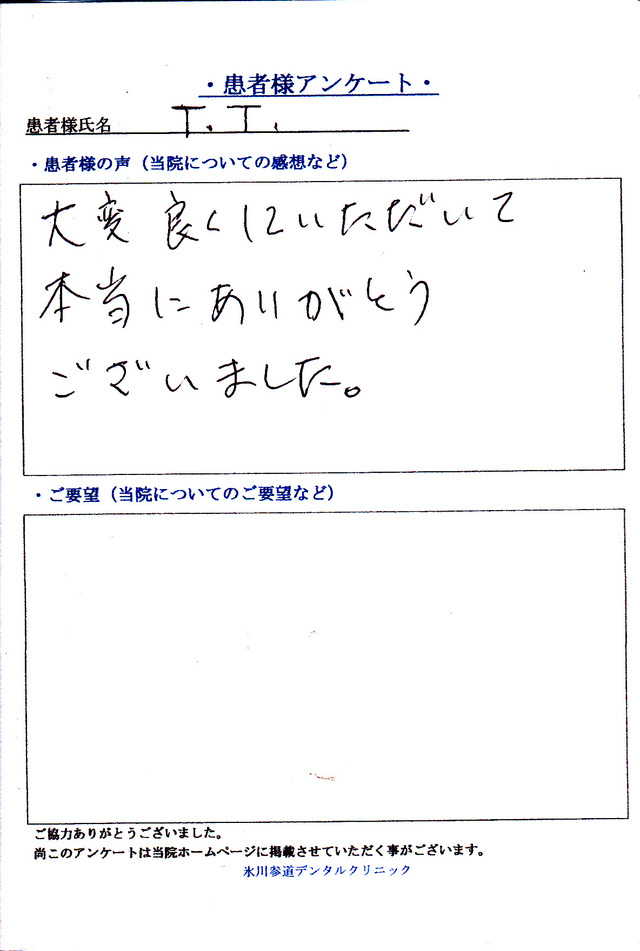 ・患者様アンケート・
患者様氏名 T. T.
・患者様の声（当院についての感想など）
大変良くしていただいて
本当にありがとう
ございました。
・ご要望（当院についてのご要望など）
ご協力ありがとうございました。
尚このアンケートは当院ホームページに掲載させていただく事がございます。
氷川参道デンタルクリニック